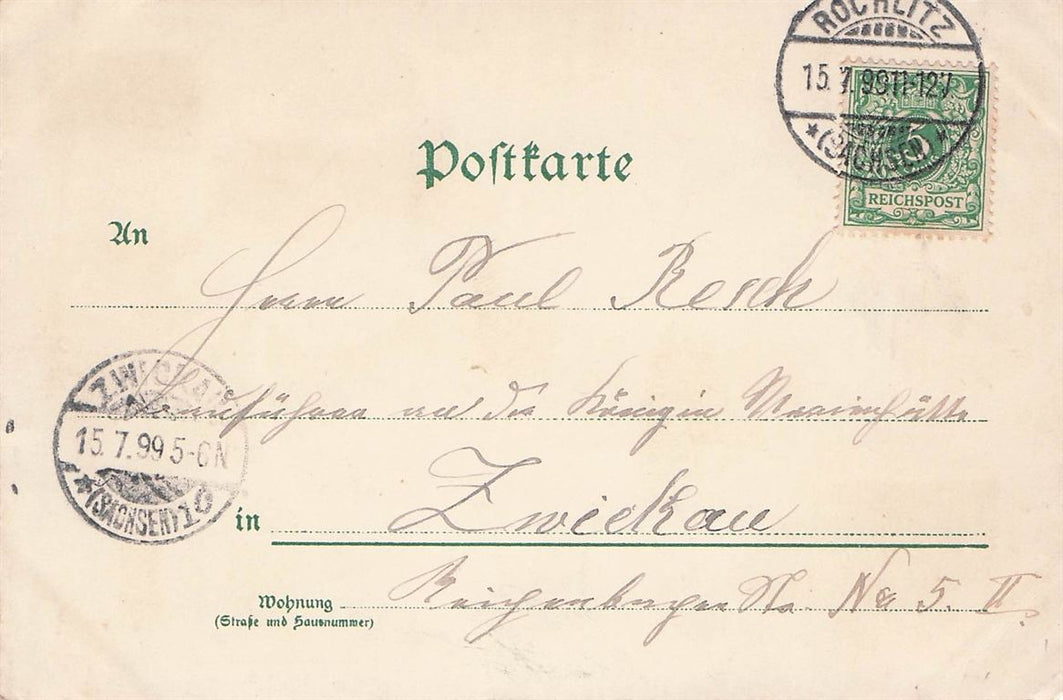 ROCHLITZ
15.7.99 11-12V
* (SACHSEN) *
5
REICHSPOST
Postkarte
An
Herrn Paul Resch
an die Königin Marienhütte
ZWICKAU
15.7.99 5-6N
* (SACHSEN)
in Zwickau
Wohnung Str. No 5. II
(Straße und Hausnummer)